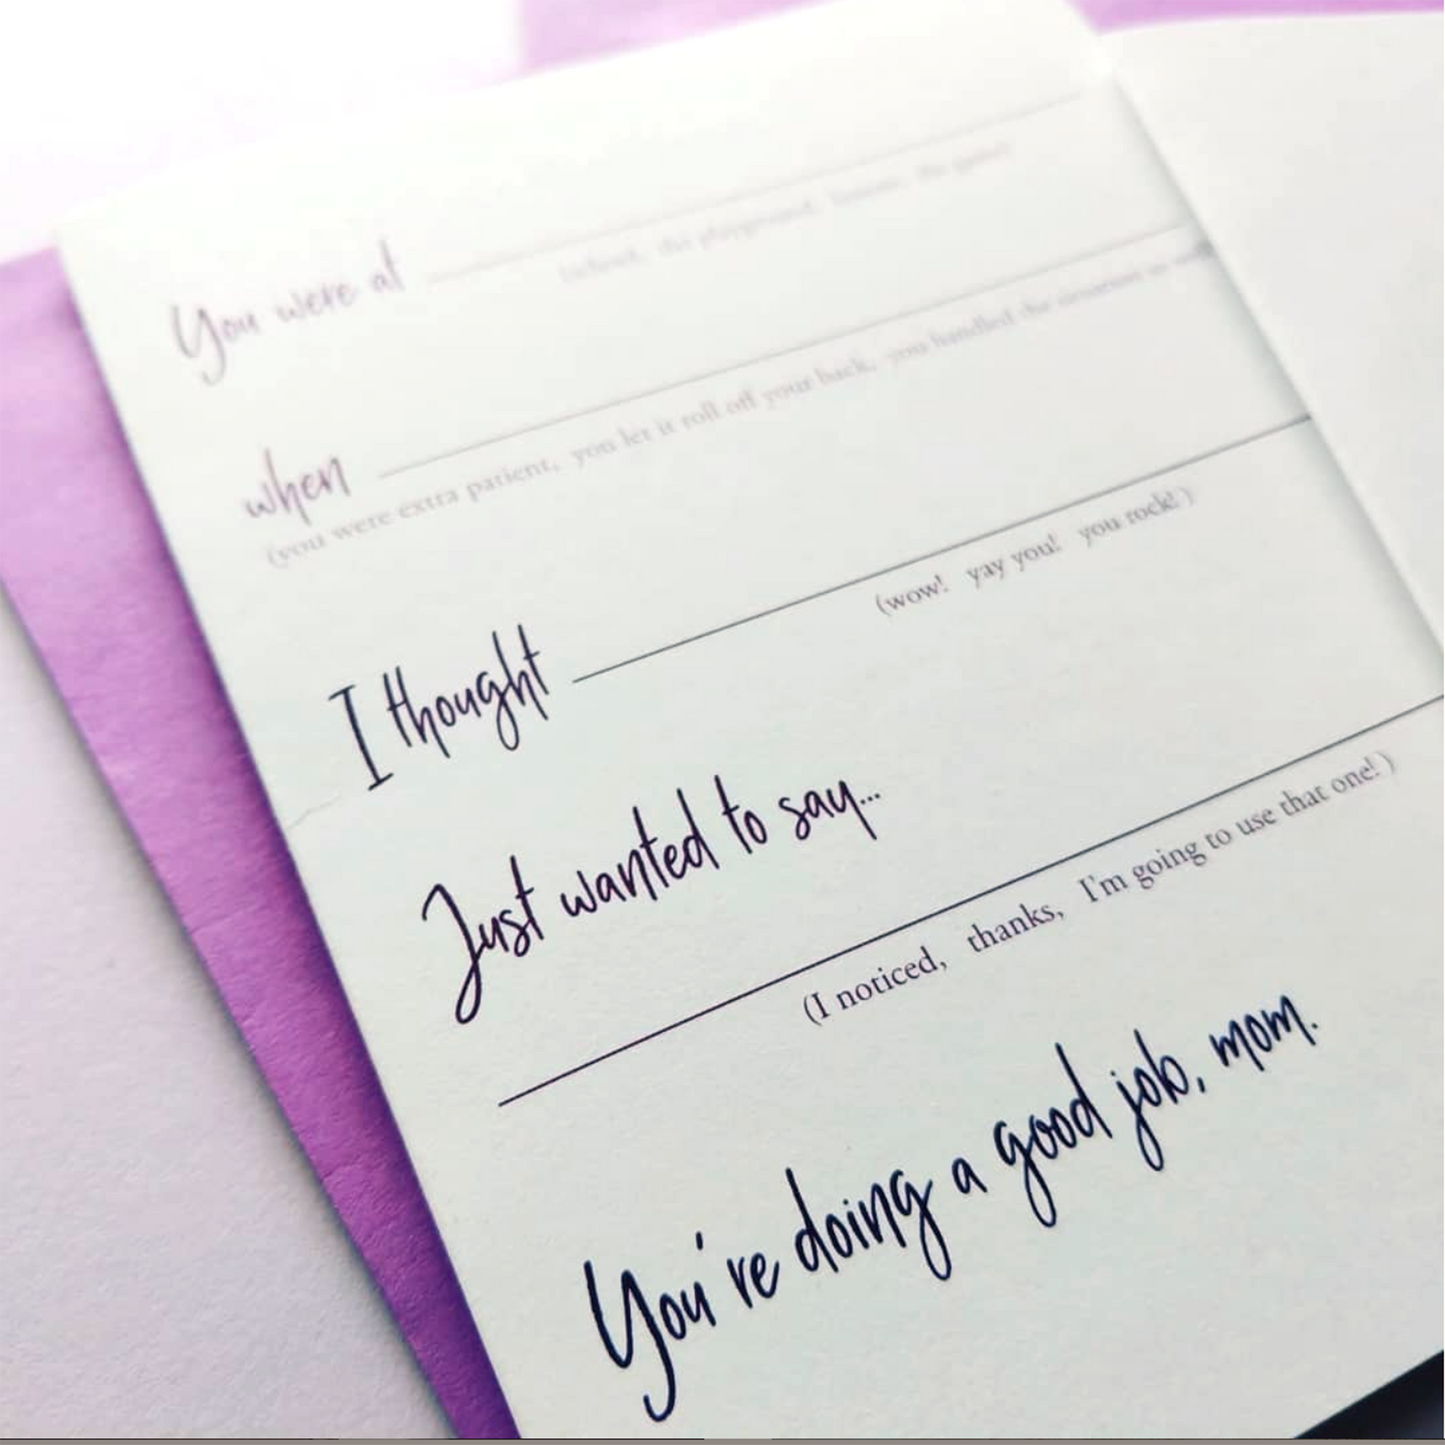 You were at
(school, the playground, the game)
when
(you were extra patient, you let it roll off your back, you handled the situation so
I thought
(wow! yay you! you rock!)
Just wanted to say...
(I noticed, thanks, I'm going to use that one!)
You're doing a good job, mom.